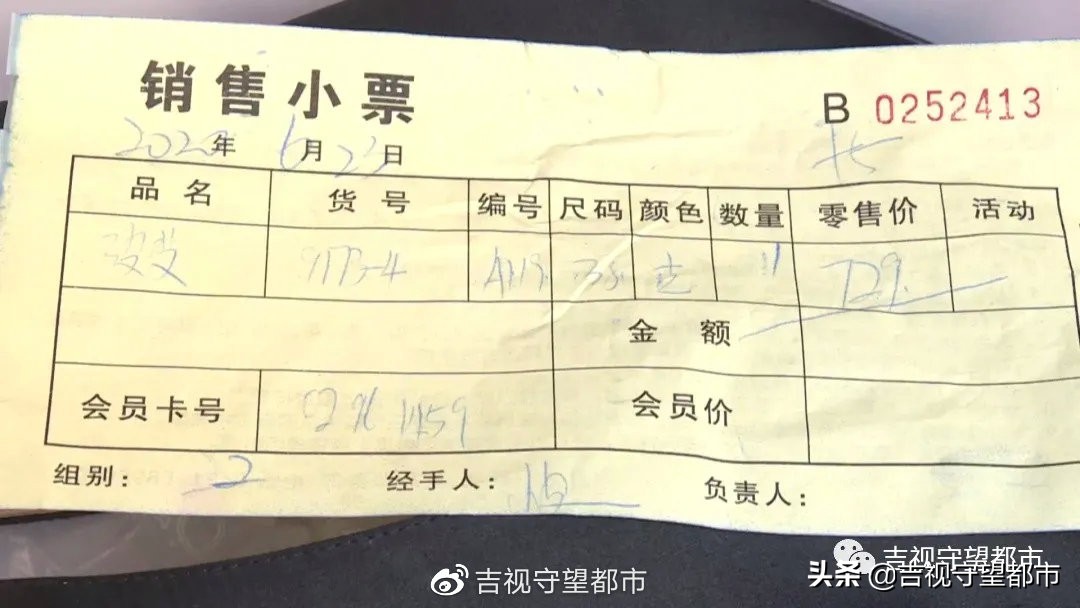 销售小票
B 0252413
2020年 6月23日
品名 货号 编号 尺码 颜色 数量 零售价 活动
9173-4 A119 35 729
金额
会员卡号 会员价
组别: 2 经手人: 负责人:
吉视守望都市
吉视守望都市
头条@吉视守望都市